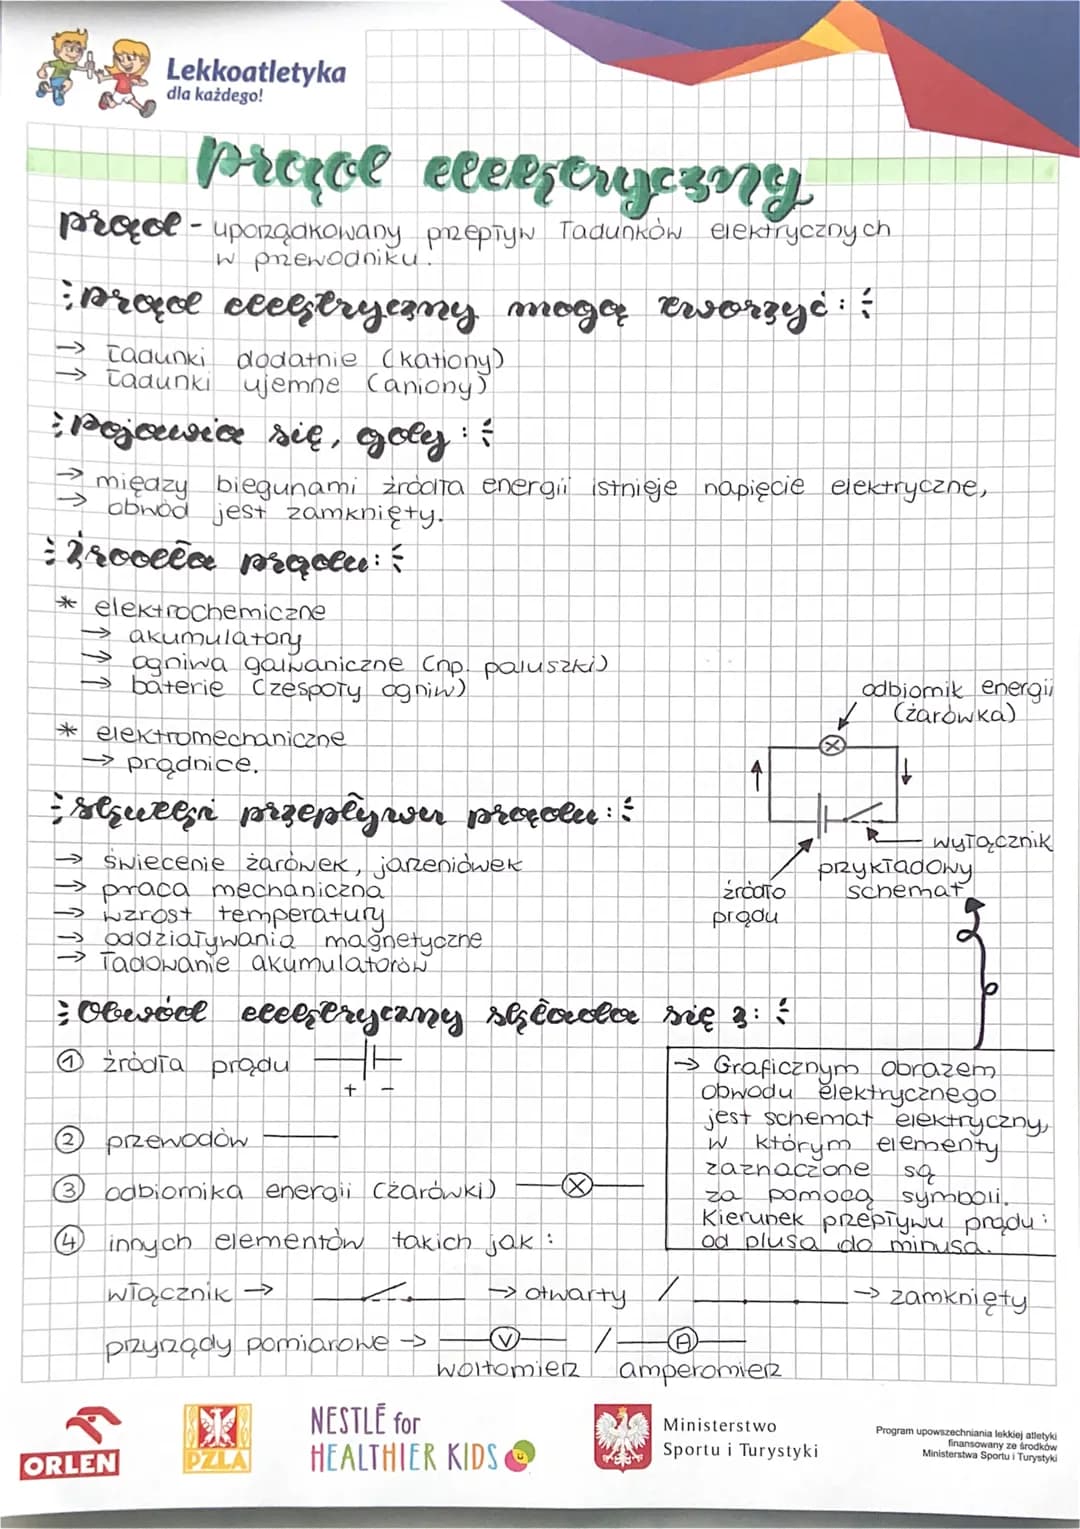 Lekkoatletyka
dla każdego!
prąd elektryczny
prąd - uporządkowany przepływ ładunków elektrycznych
w przewodniku.
prąd elektryczny mogą tworzyć:
→ ładunki dodatnie (kationy)
→ ładunki ujemne (aniony)
pojawia się, gdy:
→ między biegunami źródła energii istnieje napięcie elektryczne,
→ obwód jest zamknięty.
źródła prądu:
* elektrochemiczne
→ akumulatory
→ ogniwa galwaniczne (np. paluszki)
→ baterie (zespoły ogniw)
* elektromechaniczne
→ prądnice.
odbiornik energii
(żarówka)
wyłącznik
źródło
prądu
przykładowy
schemat
skutki przepływu prądu:
→ świecenie żarówek, jarzeniówek
→ praca mechaniczna
→ wzrost temperatury
→ oddziaływania magnetyczne
→ ładowanie akumulatorów
Obwód elektryczny składa się z:
① źródła prądu
+ -
② przewodów
③ odbiornika energii (żarówki)
④ innych elementów takich jak:
włącznik → → otwarty / → zamknięty
przyrządy pomiarowe → V / A
woltomierz amperomierz
→ Graficznym obrazem
obwodu elektrycznego
jest schemat elektryczny,
w którym elementy
zaznaczone są
za pomocą symboli.
Kierunek przepływu prądu:
od plusa do minusa.
ORLEN
PZLA
NESTLÉ for
HEALTHIER KIDS
Ministerstwo
Sportu i Turystyki
Program upowszechniania lekkiej atletyki
finansowany ze środków
Ministerstwa Sportu i Turystyki